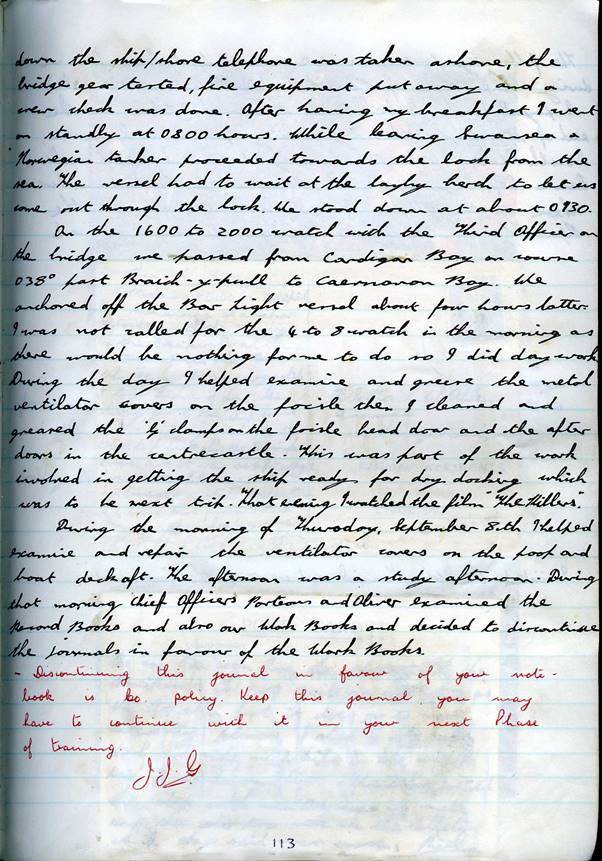 down the ship/shore telephone was taken ashore, the
bridge gear tested, fire equipment put away and a
crew check was done. After having my breakfast I went
on standby at 0800 hours. While leaving Swansea a
Norwegian tanker proceeded towards the lock from the
sea. The vessel had to wait at the layby berth to let us
come out through the lock. We stood down at about 0930.
On the 1600 to 2000 watch with the Third Officer on
the bridge we passed from Cardigan Bay on course
038° past Braich-y-pwll to Caernarvon Bay. We
anchored off the Bar Light vessel about four hours latter.
I was not called for the 4 to 8 watch in the morning as
there would be nothing for me to do so I did day work.
During the day I helped examine and grease the metal
ventilator covers on the focisle then I cleaned and
greased the 'G' clamps on the focisle head door and the after
doors in the centrecastle. This was part of the work
involved in getting the ship ready for dry docking which
was to be next trip. That evening I watched the film "The Killers".
During the morning of Thursday, September 8th I helped
examine and repair the ventilator covers on the poop and
boat deck aft. The afternoon was a study afternoon. During
that morning Chief Officers Porteous and Oliver examined the
Record Books and also our Work Books and decided to discontinue
the journals in favour of the Work Books.
- Discontinuing this journal in favour of your note-
book is Co. policy. Keep this journal you may
have to continue with it in your next Phase
of training.
J.J.G
113